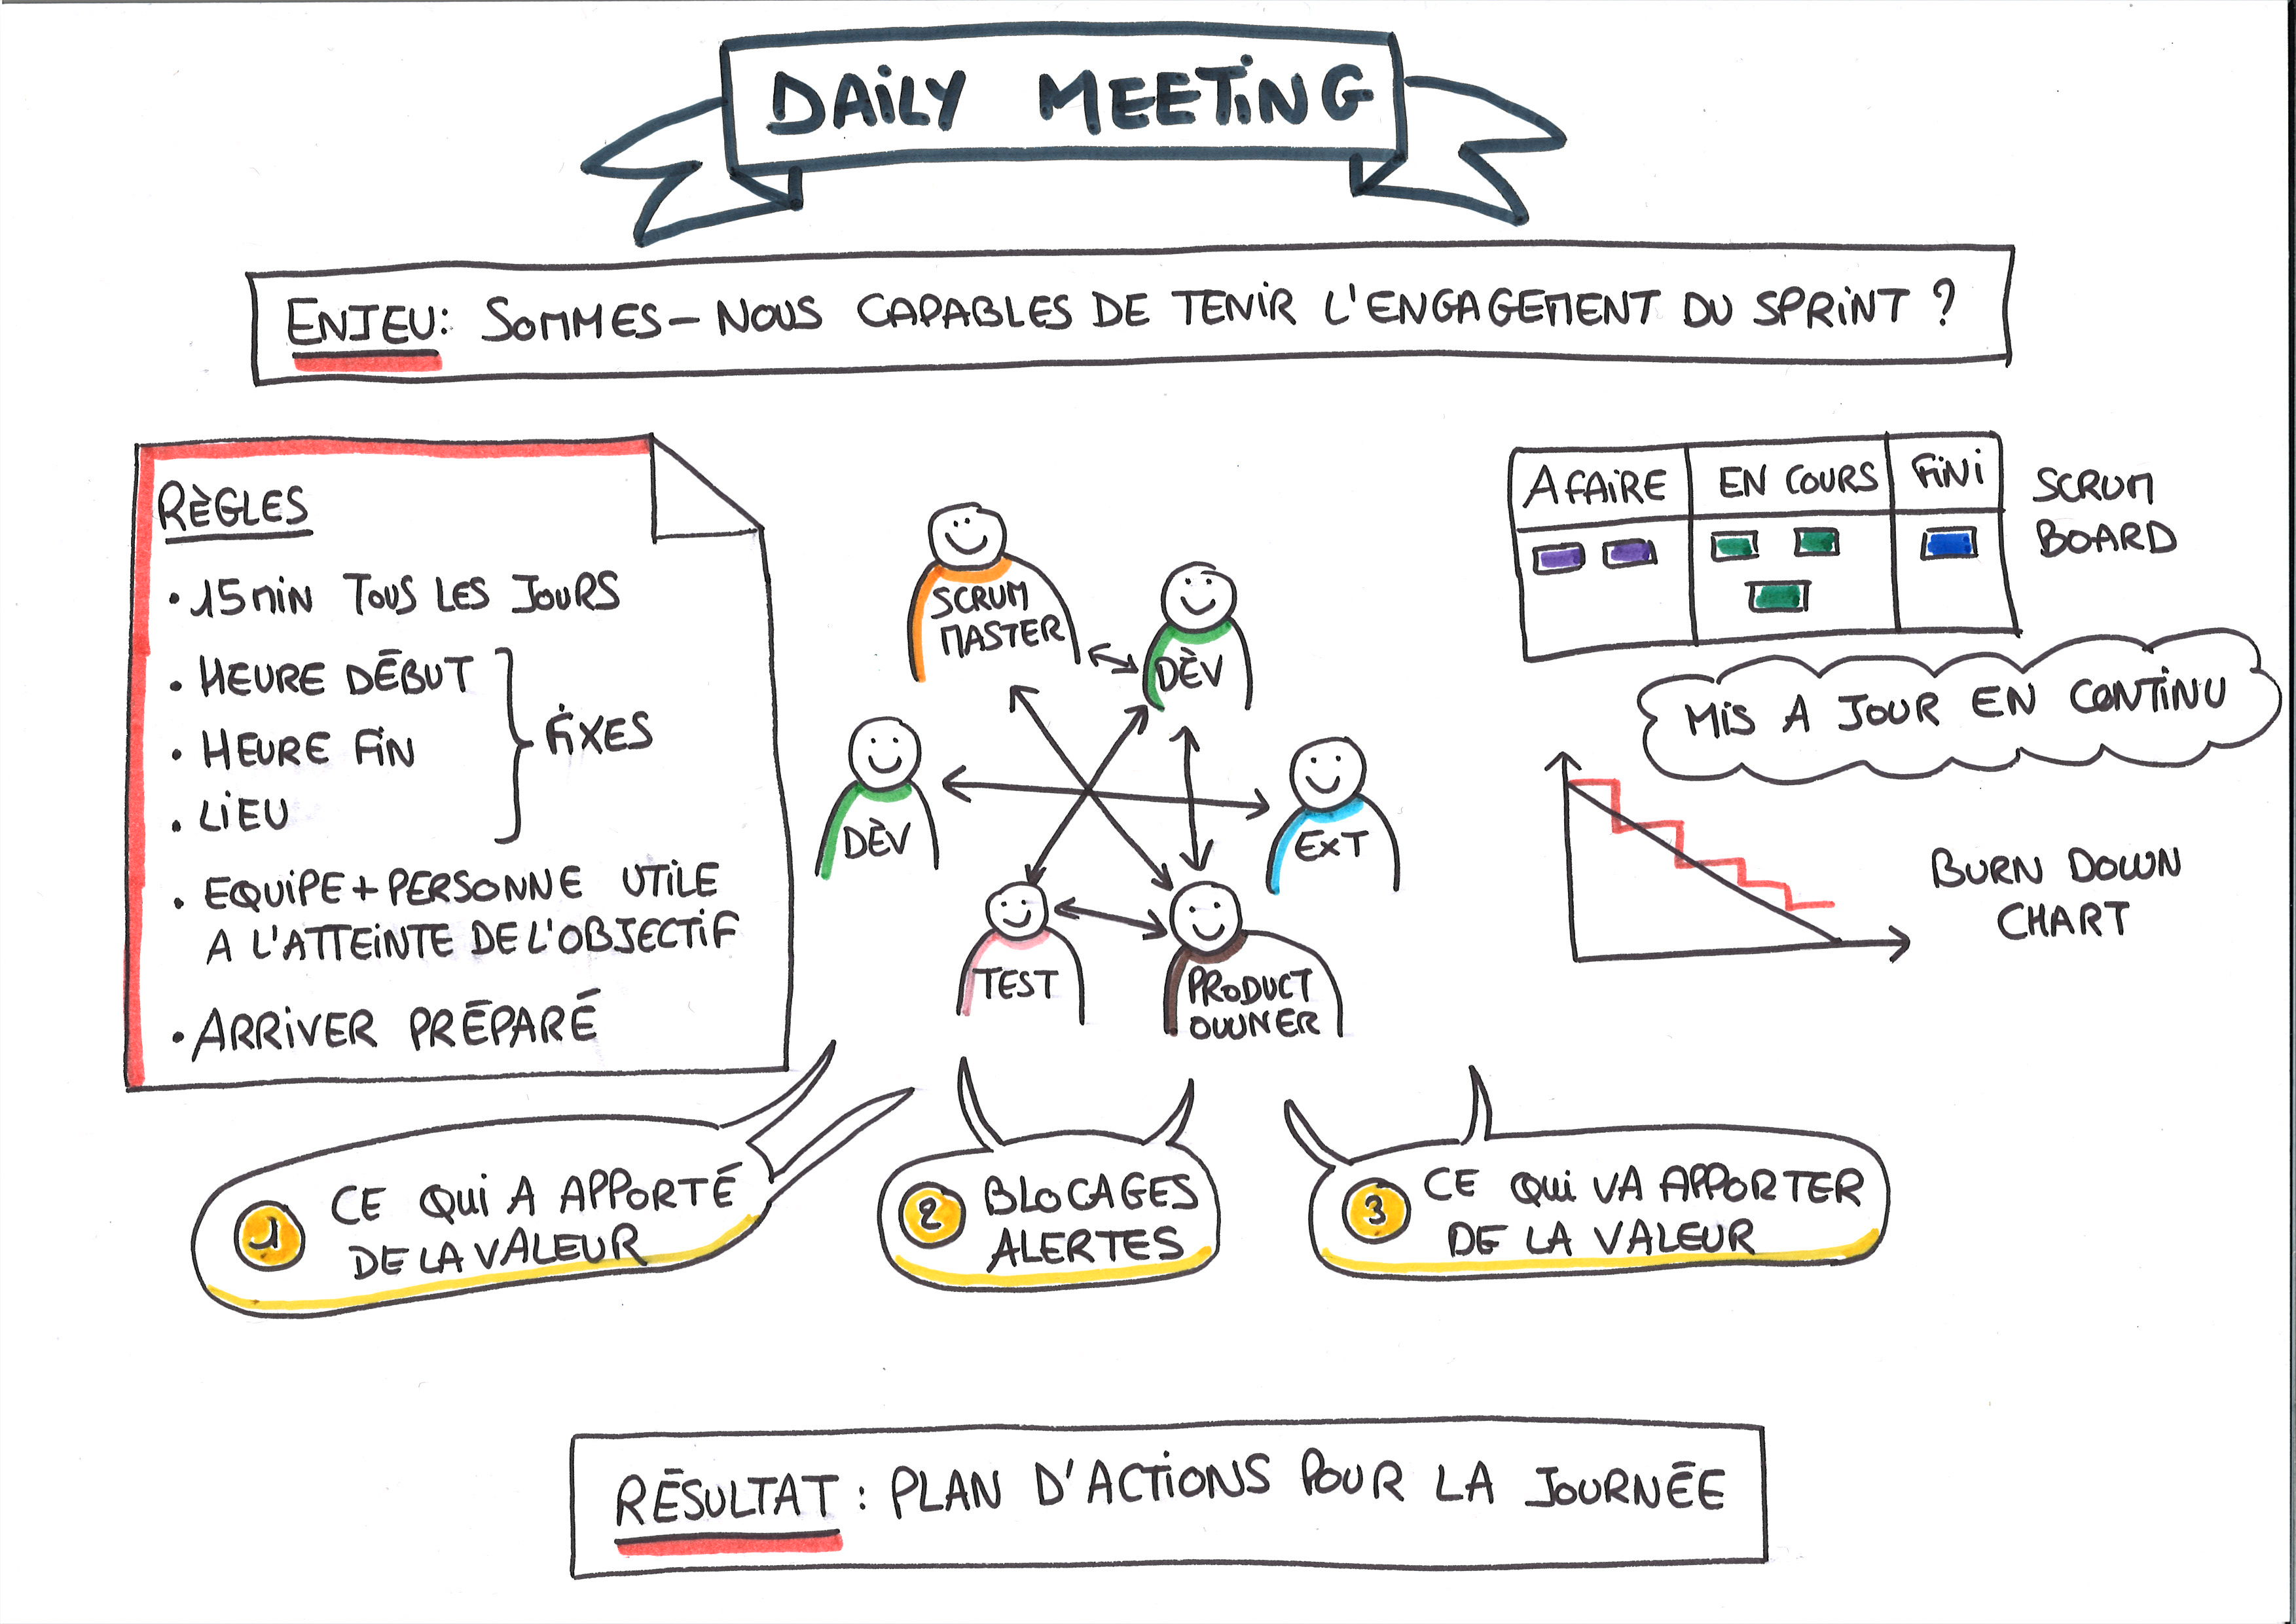 DAILY MEETING
ENJEU: SOMMES-NOUS CAPABLES DE TENIR L'ENGAGEMENT DU SPRINT ?
RÈGLES
• 15 MIN TOUS LES JOURS
• HEURE DÉBUT
• HEURE FIN
• LIEU
FIXES
• EQUIPE + PERSONNE UTILE
A L'ATTEINTE DE L'OBJECTIF
• ARRIVER PRÉPARÉ
SCRUM
MASTER
DÈV
DÈV
EXT
TEST
PRODUCT
OWNER
A FAIRE
EN COURS
FINI
SCRUM
BOARD
MIS A JOUR EN CONTINU
BURN DOWN
CHART
1
CE QUI A APPORTÉ
DE LA VALEUR
2
BLOCAGES
ALERTES
3
CE QUI VA APPORTER
DE LA VALEUR
RÉSULTAT : PLAN D'ACTIONS POUR LA JOURNÉE